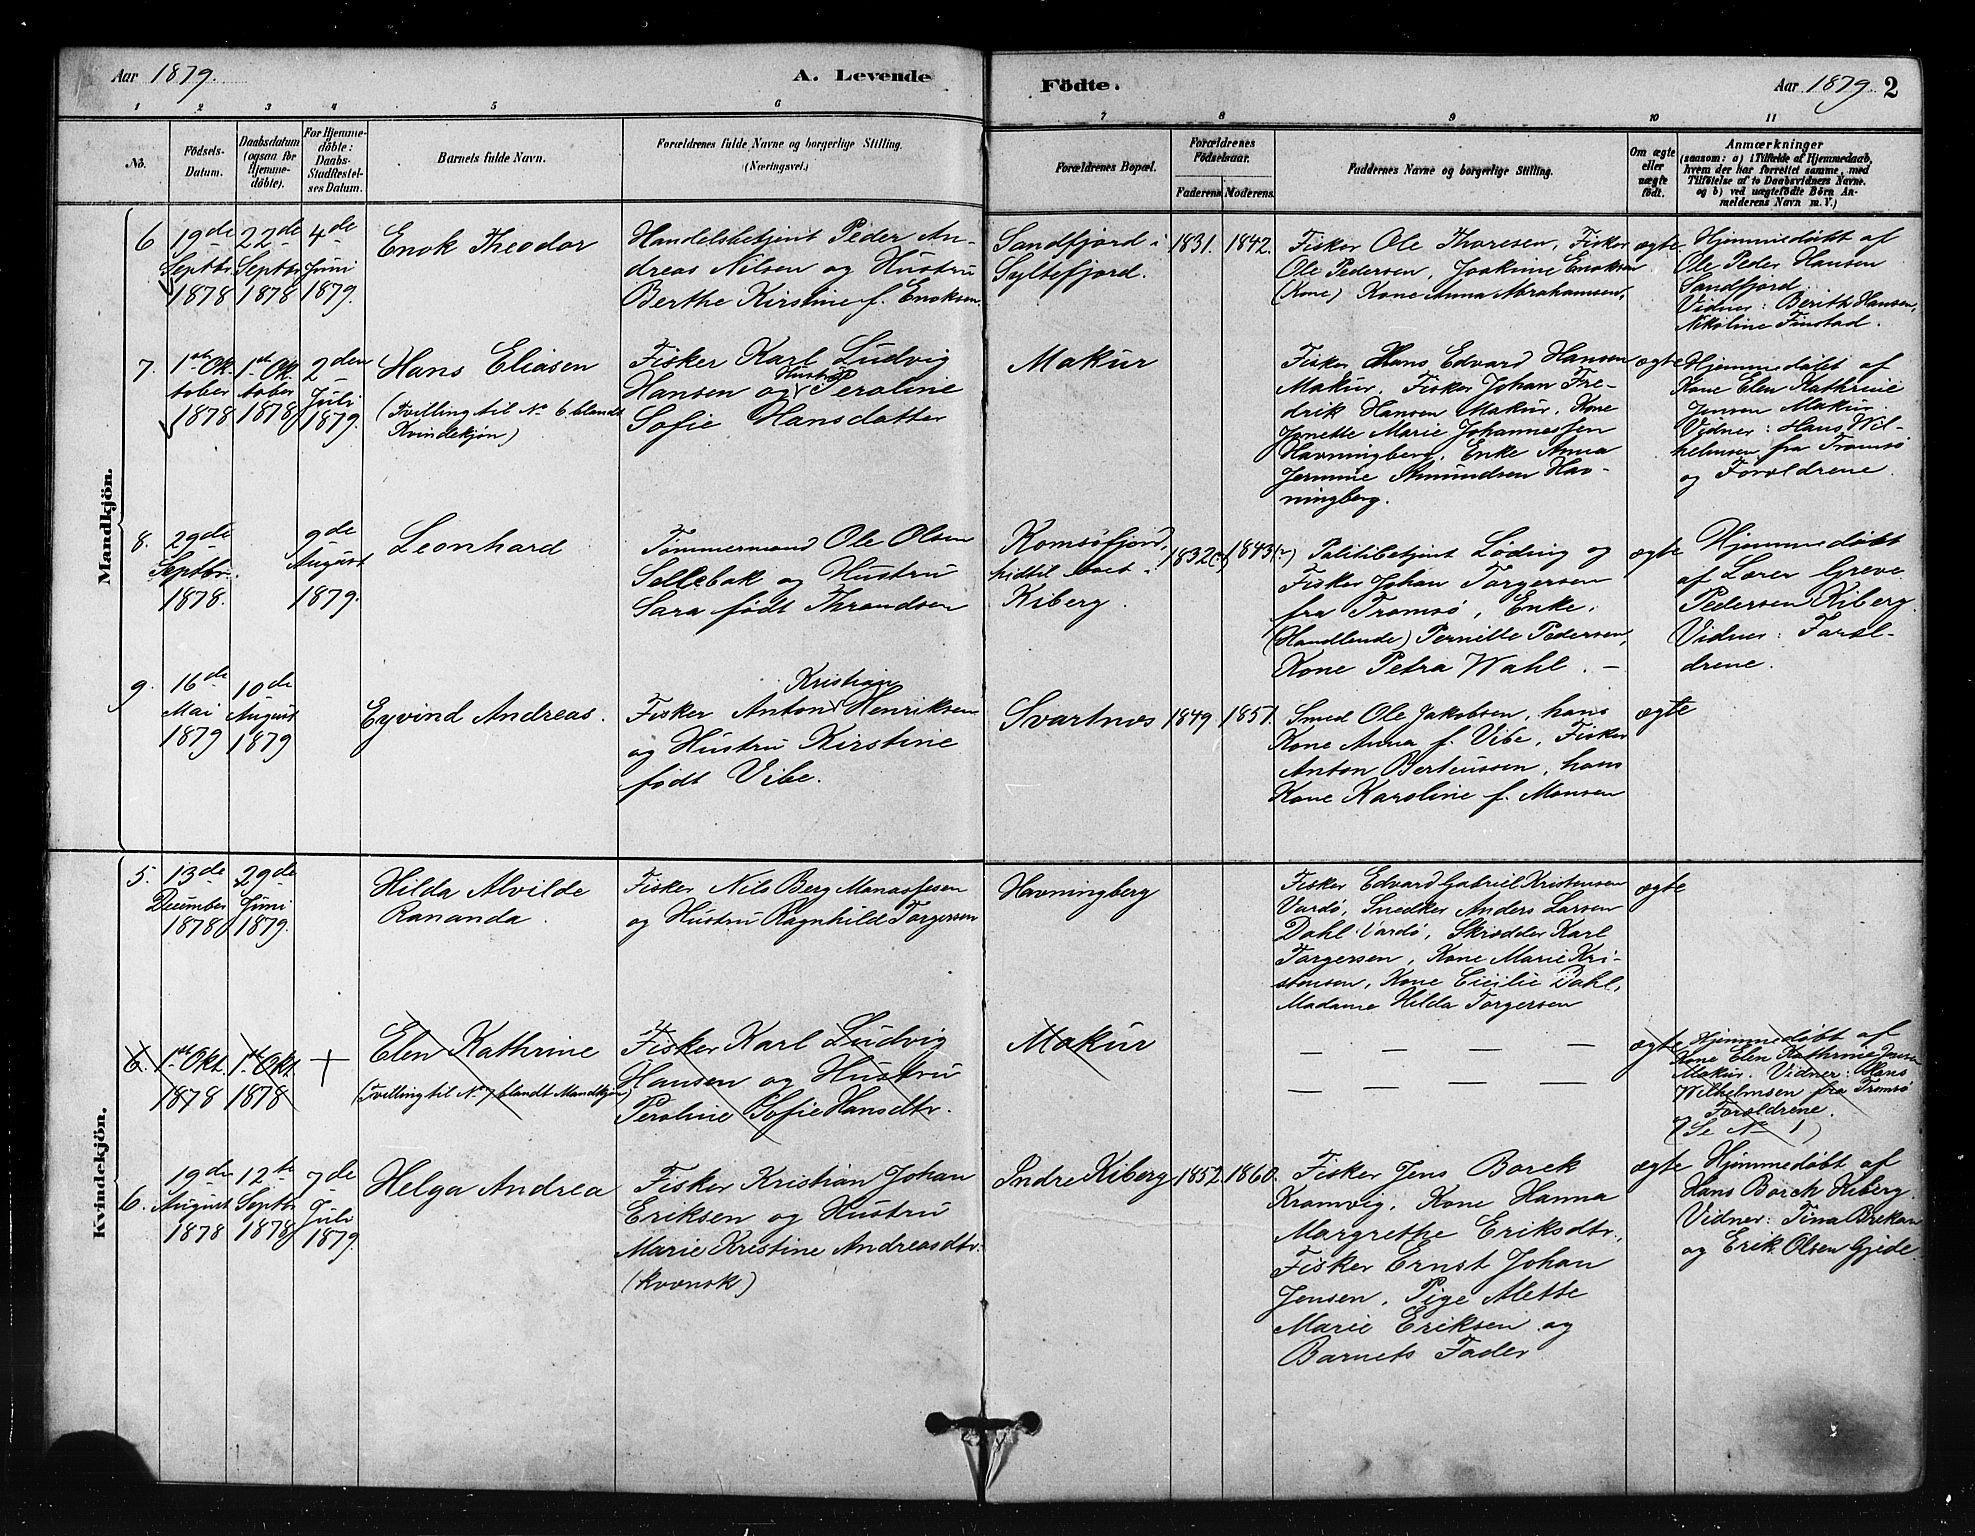 Aar 1879.
A. Levende
Födte.
Aar 1879
2
1 2 3 4 5 6 7 8 9 10 11
No.
Födsels-
Datum.
Daabsdatum
(ogsaa for
Hjemme-
döbte).
For Hjemme-
döbte:
Daabs-
Stadfæstel-
ses Datum.
Barnets fulde Navn.
Forældrenes fulde Navne og borgerlige Stilling.
(Næringsvei.)
Forældrenes Bopæl.
Forældrenes
Födselsaar.
Faderens. Moderens.
Faddernes Navne og borgerlige Stilling.
Om ægte
eller
uægte
födt.
Anmærkninger
(saasom: a) i Tilfælde af Hjemmedaab,
hvem der har forrettet samme, med
Tilföielse af to Daabsvidners Navne.
og b) ved uægtefödte Börn An-
melderens Navn m. V.)
Mandkjön.
6
19de
Septbr
1878
22de
Septbr
1878
4de
Juni
1879.
Enok Theodor
Handelsbetjent Peder An-
dreas Nilsen og Hustru
Berthe Kirstine f. Enoksen.
Sandfjord i
Syltefjord.
1831.
1842.
Fisker Ole Thoresen, Fisker
Ole Pedersen, Joakime Enoksen
(Kone) Kone Anna Abrahamsen,
ægte
Hjemmedøbt af
Ole Peder Hansen
Sandfjord
Vidner: Berith Hansen,
Nikoline Finstad.
7.
1ste Ok
tober
1878
1ste Ok
tober
1878
2den
Juli
1879.
Hans Eliasen
(Tvilling til No 6 blandt
Kvindekjøn)
Fisker Karl Ludvig
Hansen og Hustru Peroline
Sofie Hansdatter
Makur
Fisker Hans Edvard Hansen
Makur, Fisker Johan Fre-
drik Hansen Makur, Kone
Jonette Marie Johannessen
Havningberg, Enke Anna
Jermine Amundsen Hav-
ningberg.
ægte
Hjemmedøbt af
Kone Elen Kathrine
Jensen Makur.
Vidner: Hans Wil-
helmsen fra Tromsø
og Forældrene.
8.
29de
Septbr.
1878.
9de
August
1879.
Leonhard
Tømmermand Ole Olsen
Sellebak og Hustru
Sara født Thrandsen
Komsøfjord,
hidtil boet i
Kiberg.
1832(?)
1843(?)
Politibetjent Løding og
Fisker Johan Torgersen
fra Tromsø, Enke,
(Handlende) Pernille Pedersen,
Kone Petra Wahl. —
ægte
Hjemmedøbt
af Lærer Greve
Pedersen Kiberg.
Vidner: Foræl-
drene.
9.
16de
Mai
1879
10de
August
1879
Eyvind Andreas.
Fisker Anton Kristian Henriksen
og Hustru Kirstine
født Vibe.
Svartnes
1849.
1851.
Smed Ole Jakobsen, hans
Kone Anna f. Vibe, Fisker
Anton Berteussen, hans
Kone Karoline f. Monsen
ægte
Kvindekjön.
5.
13de
December
1878
29de
Juni
1879.
Hilda Alvilde
Rananda.
Fisker Nils Berg Manassesen
og Hustru Ragnhilde Torgersen
Havningberg
Fisker Edvard Gabriel Kristensen
Vardø, Snedker Anders Larsen
Dahl Vardø, Skrædder Karl
Torgersen, Kone Marie Kri-
stensen, Kone Cicilie Dahl,
Madame Hilda Torgersen
ægte
6.
1ste Okt.
1878
1ste Okt
1878
+
Elen Kathrine
(Tvilling til No 7 blandt Mandkjøn)
Fisker Karl Ludvig
Hansen og Hustru
Peroline Sofie Hansdtr.
Makur
— — — — —
— — — — —
ægte
Hjemmedøbt af
Kone Elen Kathrine Jensen
Makur. Vidner: Hans
Wilhelmsen fra Tromsø
og Forældrene.
(Se No 1)
6.
19de
August
1878
12te
Septbr
1878
7de
Juli
1879.
Helga Andrea
Fisker Kristian Johan
Eriksen og Hustru
Marie Kristine Andreasdtr.
(kvænsk)
Indre Kiberg
1852.
1860.
Fisker Jens Borck
Kramvig, Kone Hanna
Margrethe Eriksdtr.,
Fisker Ernst Johan
Jensen, Pige Alette
Marie Eriksen og
Barnets Fader
ægte
Hjemmedøbt af
Hans Borch Kiberg.
Vidner: Tina Brekan
og Erik Olsen Gjede.